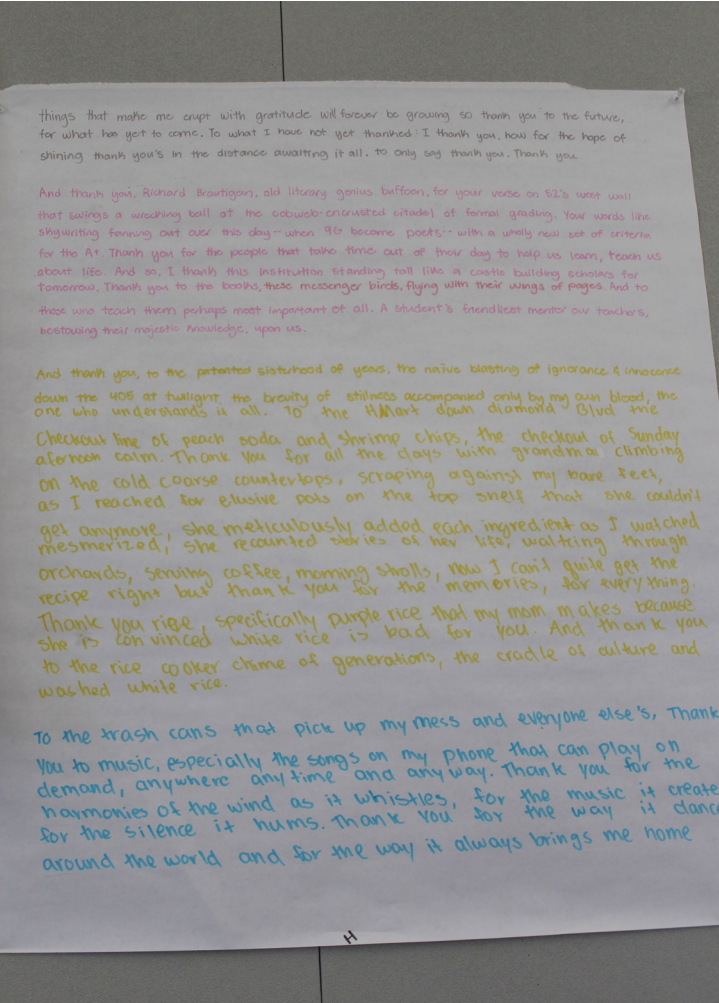 things that make me erupt with gratitude will forever be growing so thank you to the future,
for what has yet to come. To what I have not yet thanked: I thank you, now for the hope of
shining thank you's in the distance awaiting it all. to only say thank you. Thank you
And thank you, Richard Brautigan, old literary genius buffoon, for your verse on 52's west wall
that swings a wrecking ball at the cobweb-encrusted citadel of formal grading. Your words like
skywriting fanning out over this day--when 9G become poets--with a wholly new set of criteria
for the A+. Thank you for the people that take time out of their day to help us learn, teach us
about life. And so, I thank this institution standing tall like a castle building scholars for
tomorrow. Thank you to the books, these messenger birds, flying with their wings of pages. And to
those who teach them perhaps most important of all. A student's friendliest mentor our teachers,
bestowing their majestic knowledge, upon us.
And thank you, to the patented sisterhood of years, the naive blasting of ignorance & innocence
down the 405 at twilight, the brevity of stillness accompanied only by my own blood, the
one who understands it all. To the HMart down diamond Blvd the
Checkout line of peach soda and shrimp chips, the checkout of Sunday
afernoon calm. Thank you for all the days with grandma climbing
on the cold coarse countertops, scraping against my bare feet,
as I reached for elusive pots on the top shelf that she couldn't
get anymore, she meticulously added each ingredient as I watched
mesmerized, she recounted stories of her life, waltzing through
orchards, serving coffee, morning strolls, now I can't quite get the
recipe right but thank you for the memories, for everything.
Thank you rice, specifically purple rice that my mom makes because
she is convinced white rice is bad for you. And thank you
to the rice cooker chime of generations, the cradle of culture and
washed white rice.
To the trash cans that pick up my mess and everyone else's, Thank
you to music, especially the songs on my phone that can play on
demand, anywhere anytime and anyway. Thank you for the
harmonies of the wind as it whistles, for the music it create
for the silence it hums. Thank you for the way it danc
around the world and for the way it always brings me home
H